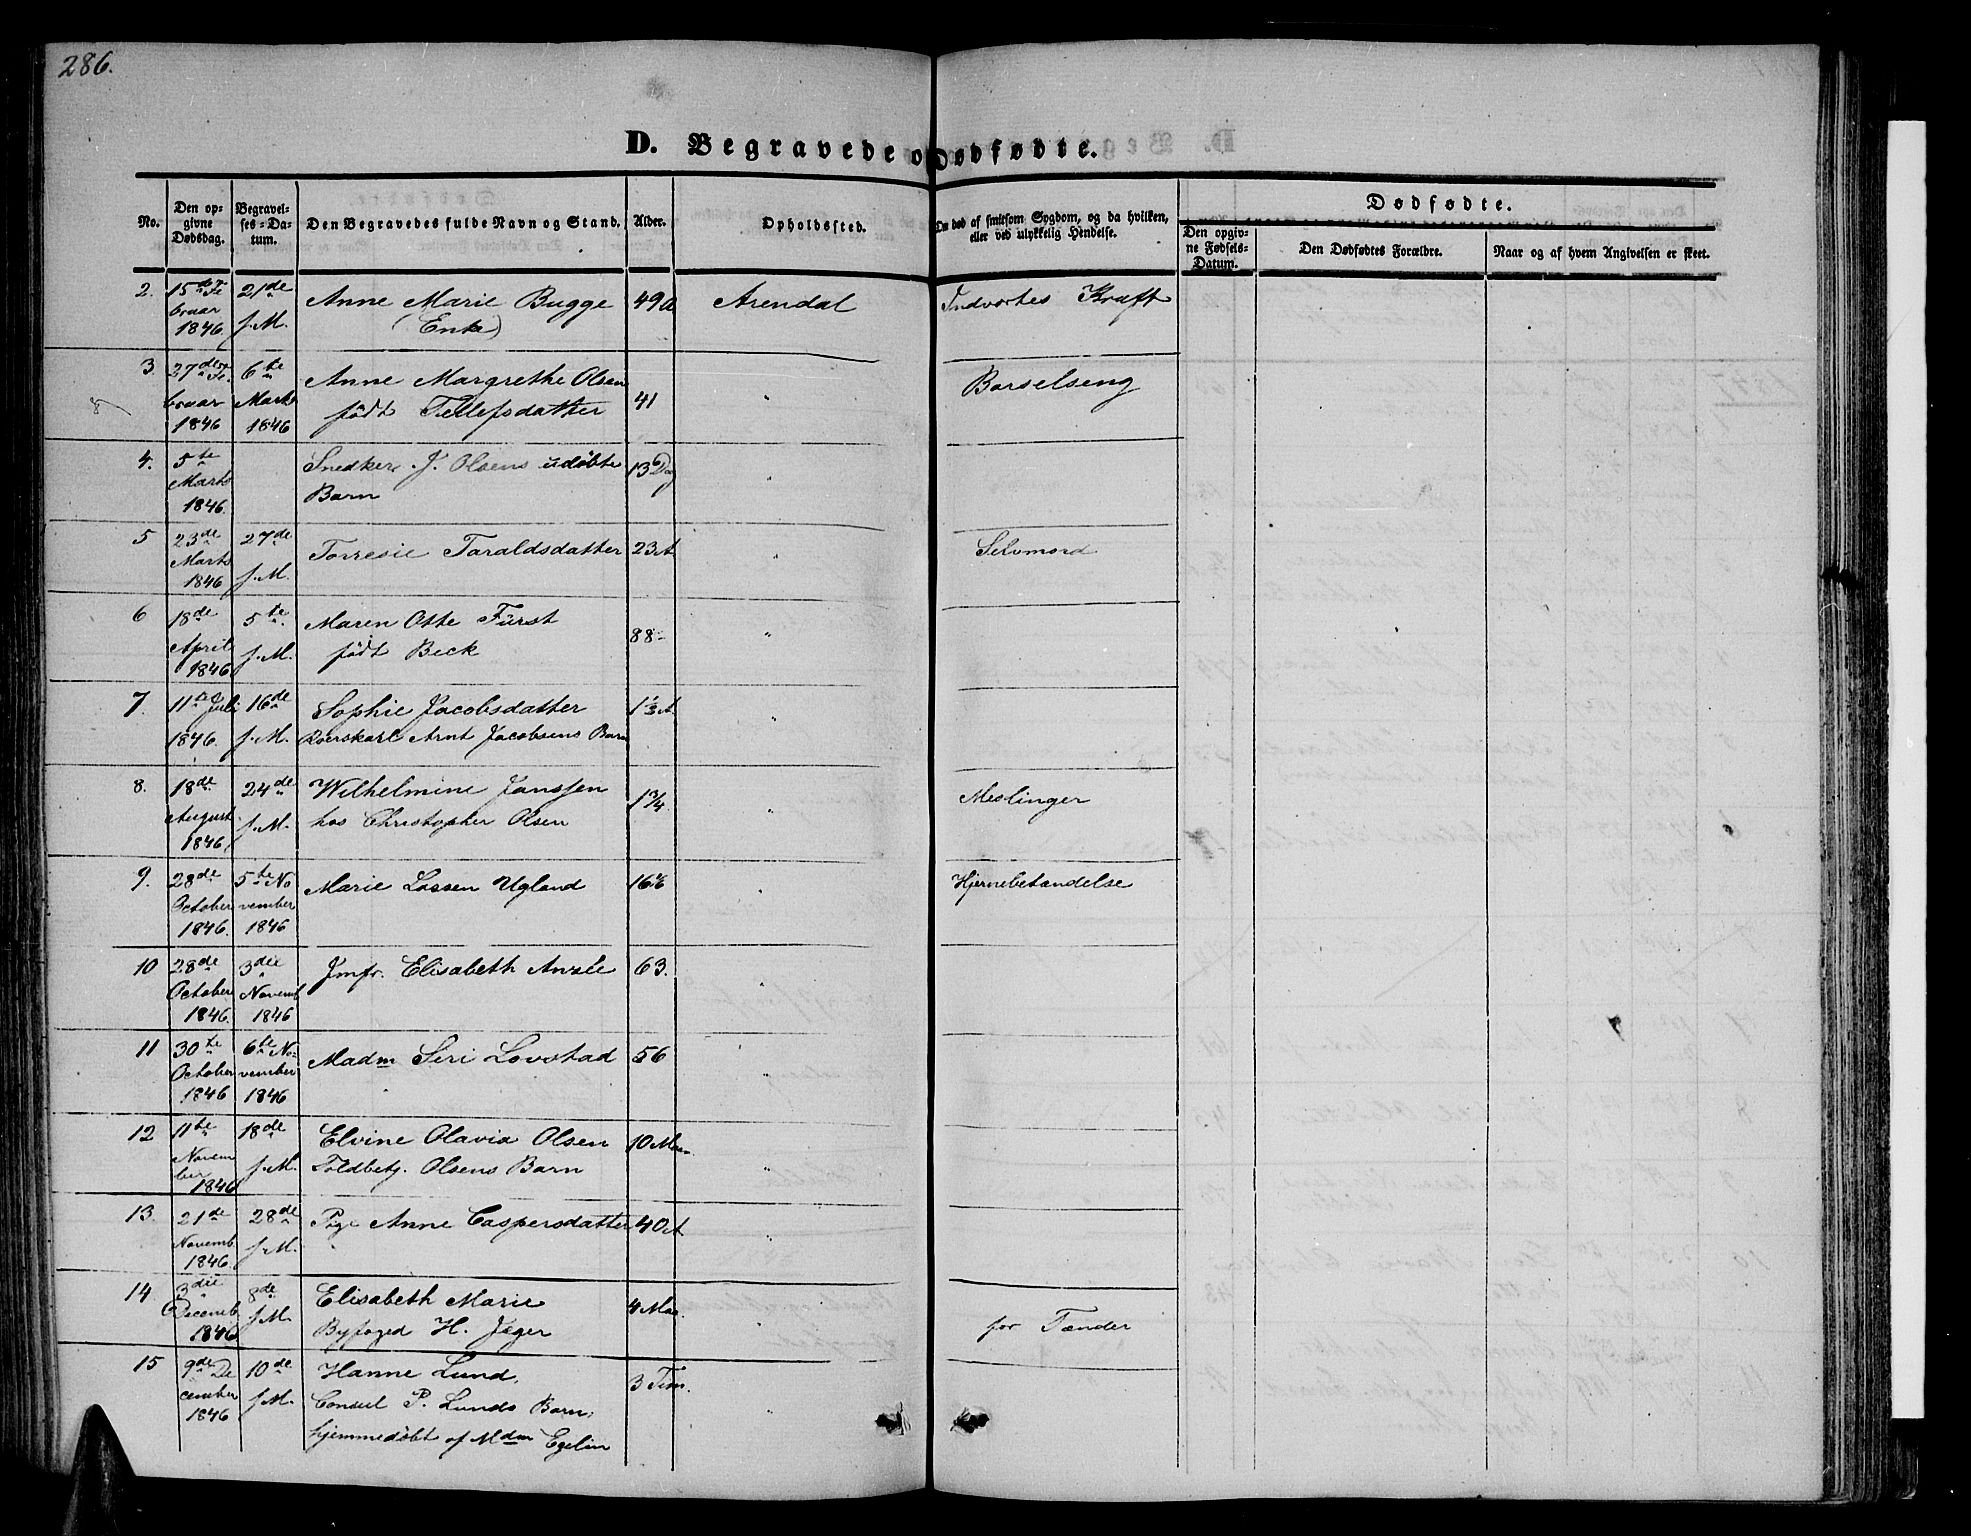 286.
D. Begravede o Dødfødte.
No.
Den opgivne Dødsdag.
Begravelses-Datum.
Den Begravedes fulde Navn og Stand.
Alder.
Opholdssted.
Om død af smitsom Sygdom, og da hvilken, eller ved ulykkelig Hendelse.
Dødfødte.
Den opgivne Fødsels-Datum.
Den Dødfødtes Forældre.
Naar og af hvem Angivelsen er skeet.
2. 15de Februar 1846 21de f. M. Anne Marie Bugge (Enke) 49 A Arendal Indvortes Kræft
3. 27de Februar 1846 6te Marts 1846 Anne Margrethe Olsen født Tellefsdatter 41 " Barselseng
4. 5te Marts 1846. Snedker J. Olsens udøbte Barn 13 Dag "
5 23de Marts 1846 27de f. M. Torresie Taraldsdatter 23 A Selvmord
6 18de April 1846 5te f. M. Maren Otte Fürst født Beck 88 "
7. 11te Juli 1846. 16de f. M. Sophie Jacobsdatter Roerskarl Arnt Jacobsens Barn 1 1/3 A "
8. 18de August 1846 24de f. M. Wilhelmine Janssen hos Christopher Olsen 1 3/4 " Meslinger
9. 28de October 1846. 5te November 1846 Marie Lassen Ugland 16 1/6 " Hjernebetændelse
10 28de October 1846. 3die Novemb 1846 Jmfr. Elisabeth 63. "
11 30te October 1846 6te November 1846 Madm Seri Lovstad 56 "
12 11te November 1846 18de f. M. Elvine Olavia Olsen Toldbetj. Olsens Barn 10 Maa "
13. 21de Novemb. 1846. 28de f. M. Pige Anne Caspersdatter 40 A
14. 3die Decemb. 1846 8de f. M. Elisabeth Marie Byfoged H. Jæger 4 Maa. for Tænder
15 9de December 1846 10de f. M. Hanne Lund, Consul P. Lunds Barn, hjemmedøbt af Mdm Egelin 3 Tim.